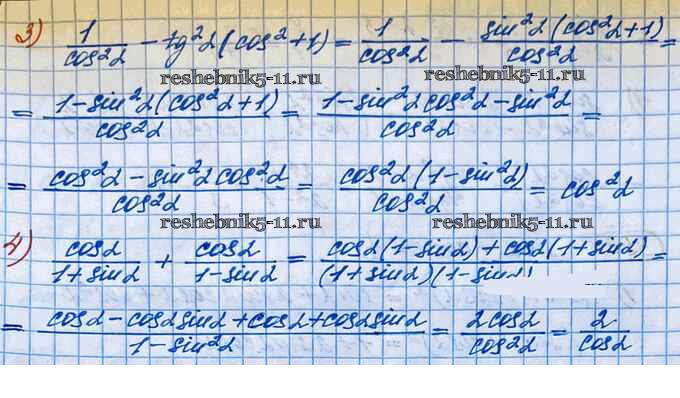 3) 1/cos²α − tg²α(cos²+1) = 1/cos²α − sin²α(cos²α+1)/cos²α =
reshebnik5-11.ru reshebnik5-11.ru
= 1−sin²α(cos²α+1)/cos²α = 1−sin²αcos²α−sin²α/cos²α =
= cos²α−sin²αcos²α/cos²α = cos²α(1−sin²α)/cos²α = cos²α
reshebnik5-11.ru reshebnik5-11.ru
4) cosα/1+sinα + cosα/1−sinα = cosα(1−sinα)+cosα(1+sinα)/(1+sinα)(1−sin =
= cosα−cosαsinα+cosα+cosαsinα/1−sin²α = 2cosα/cos²α = 2/cosα